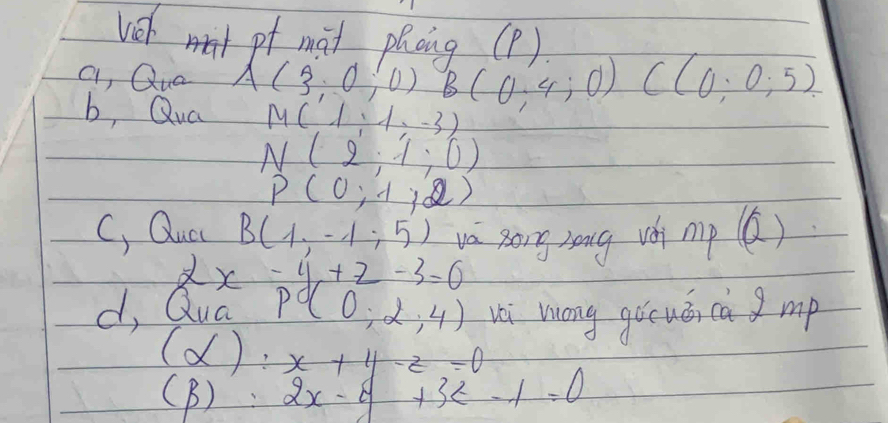 Viết mặt pt mặt phẳng (P).
a, Qua A(3; 0; 0) B(0; 4; 0) C(0; 0; 5).
b, Qua M(1; 1; -3)
N(2; 1; 0)
P(0; 1; 2)
c, Qua B(1; -1; 5) và song song với mp (Q) :
2x - y + z - 3 = 0
d, Qua P(0; 2; 4) và vuông góc với cả 2 mp
(α) : x + y - z = 0
(β) : 2x - y + 3z - 1 = 0